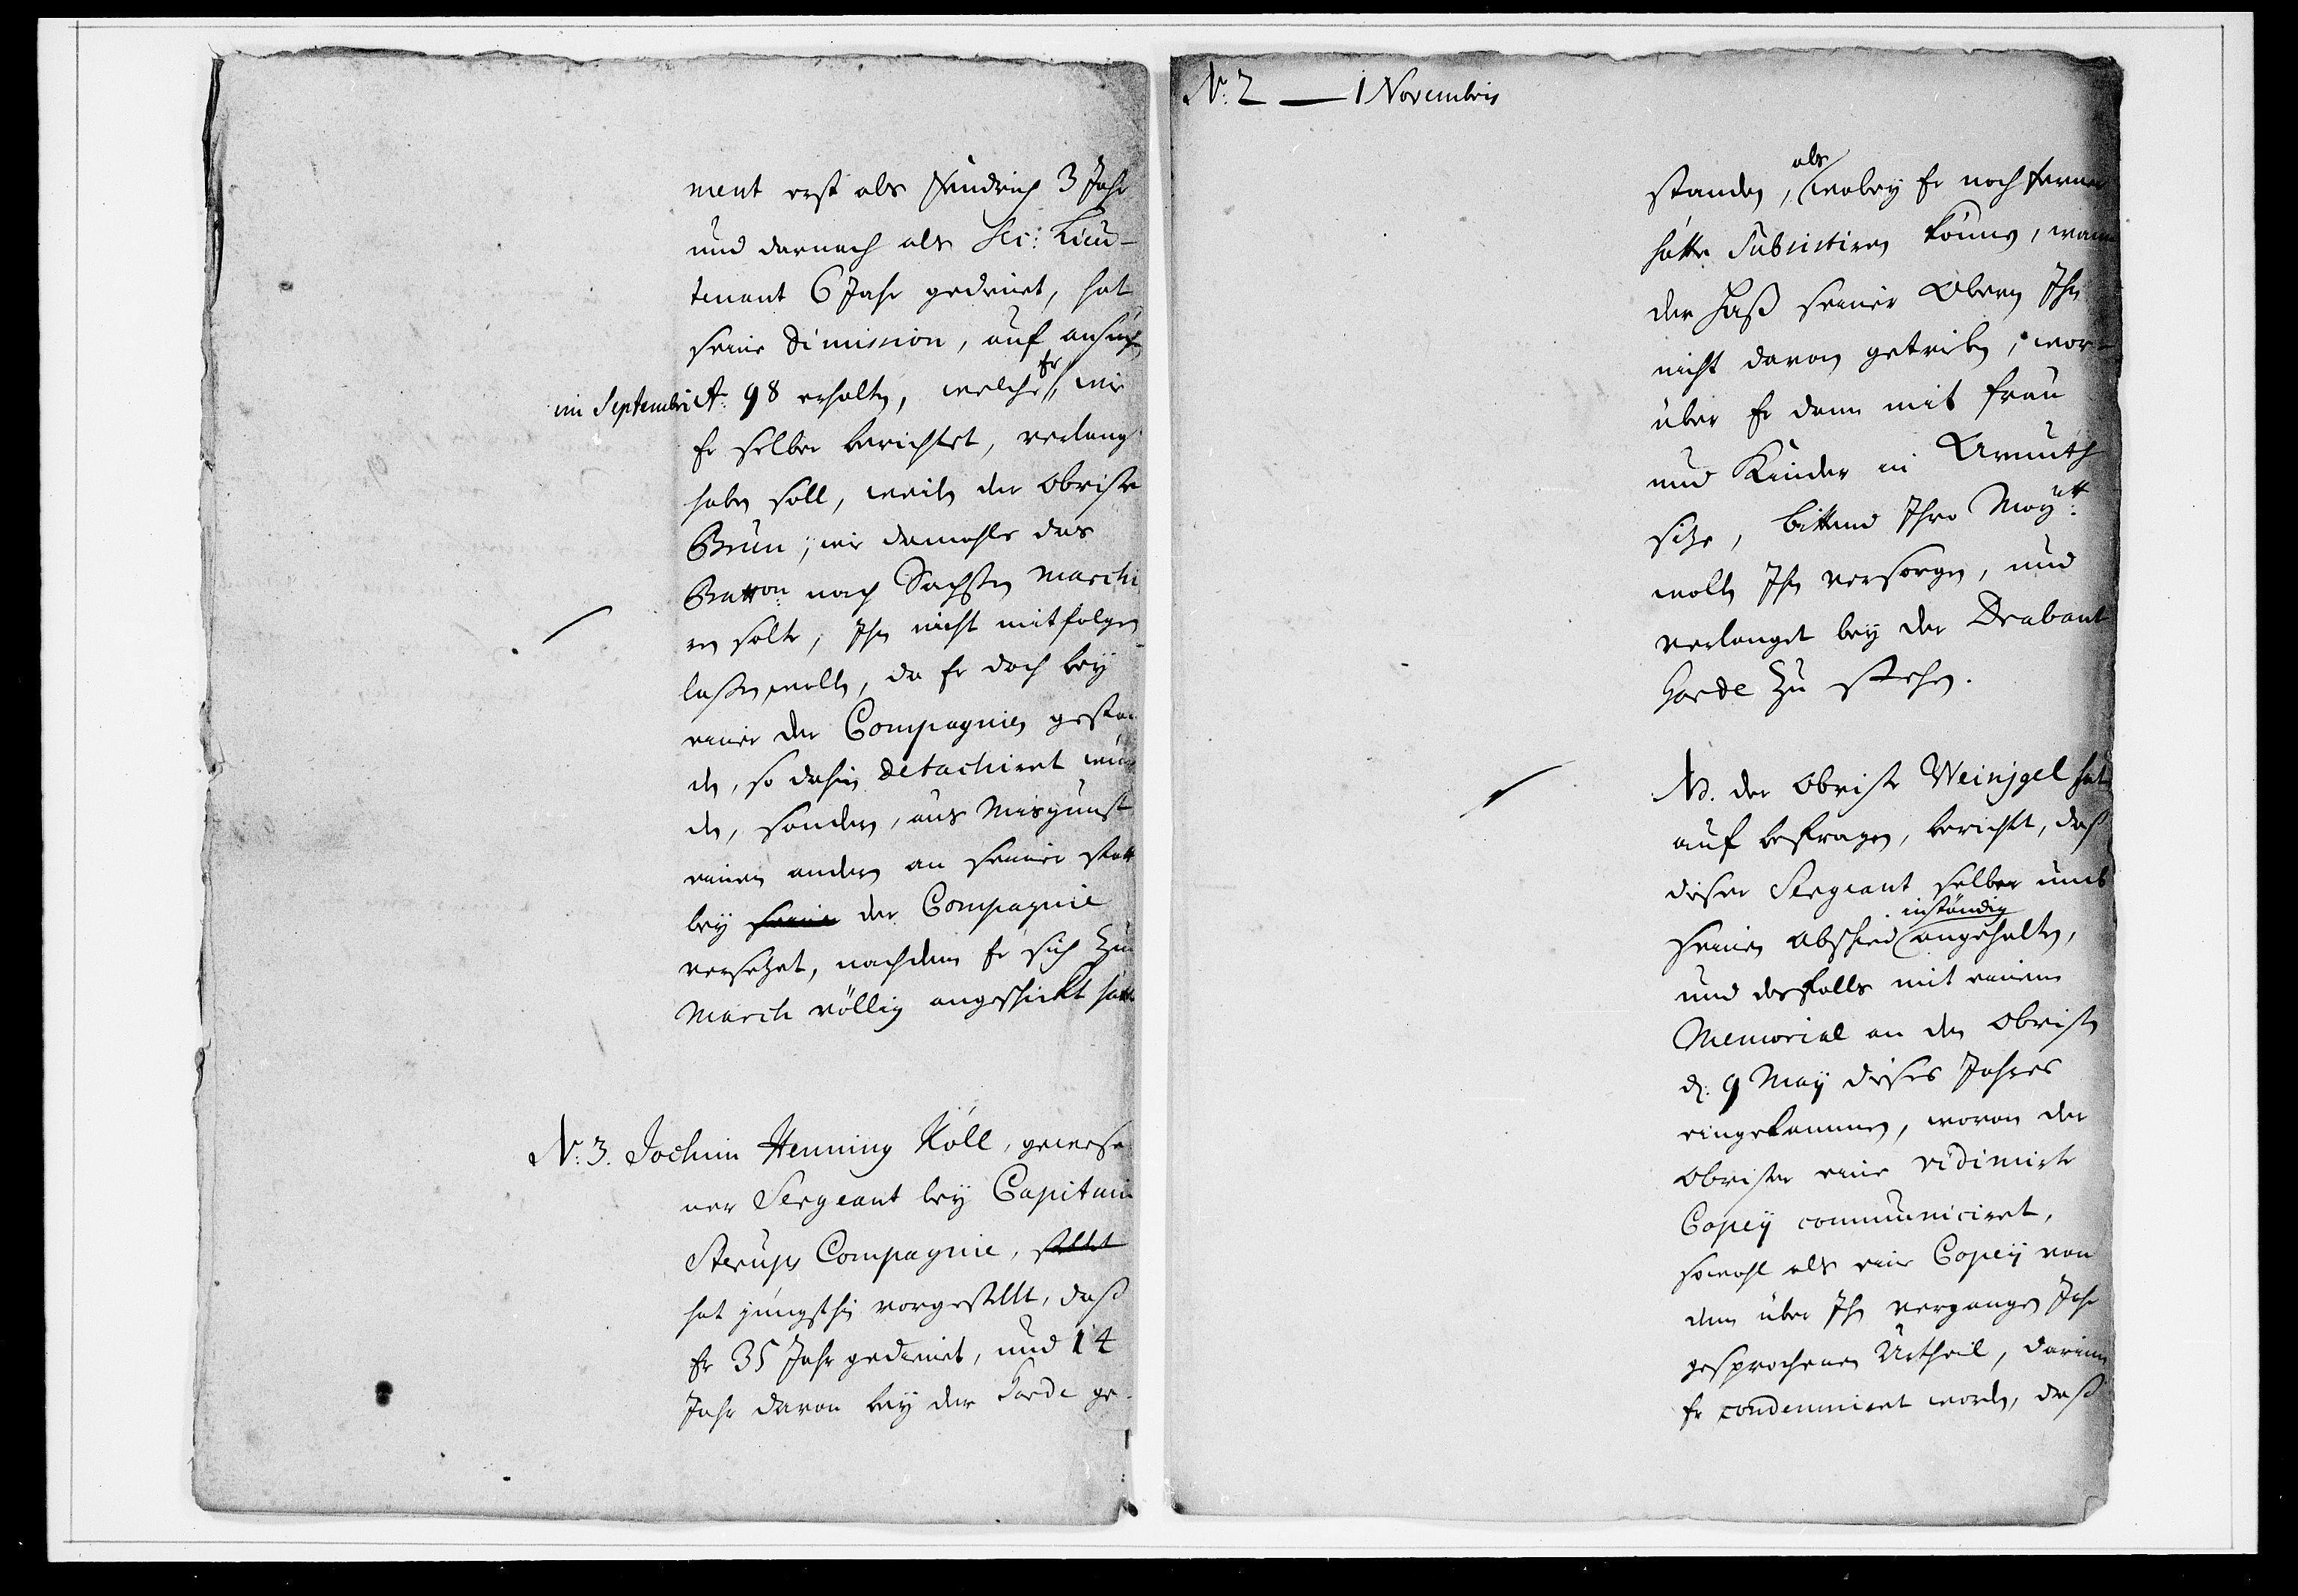 ment erst als Fendrich 3 Jahr
und darnach als Sec: Lieu-
tenant 6 Jahr gedienet, hat
seine Dimission, auf ansuchen
im Septembri Ao: 98 erhalten, welche er, wie
Er selber berichtet, verlangt
haben soll, weilen der Obriste
Brün, wie damahls das
Batton: nach Sachsen marchi
ren solte, Ihn nicht mitfolgen
laßen wollen, da Er doch bey
einer der Compagnien gestan
den, so dahin detachiret wür
den, sondern, aus Misgunst
einen andern an seiner statt
bey seine der Compagnie
versetzet, nachdem Er sich zum
March völlig angeschickt hätte
No: 3. Jochim Henning Köll, gewese
ner Sergeant bey Capitain
Sterups Compagnie, stellet
hat jüngsthin vorgestellt, daß
Er 35 Jahr gedienet, und 14
Jahr davon bey der Garde ge-
No: 2 — 1 Novembris
standen, als wobey Er noch ferner
hätte Subsistiren können, wann
der Haß seiner Obern Ihn
nicht davon getrieben, wor-
über Er dann mit Frau
und Kinder in Armuth
sitze, bittend Ihro Maytt:
wollen Ihn versorgen, und
verlanget bey der Drabant
Garde zu stehen.
NB. der Obriste Weinigel hat
auf befragen, berichtet, daß
dieser Sergeant selber umb
seinen Abschied inständig angehalten,
und desfalls mit einem
Memorial an den Obristen
d: 9 May dieses Jahres
eingekommen, wovon der
Obrister eine vidimirte
Copey communiciret,
sowohl als eine Copey von
dem über Ihn vergangen Jahr
gesprochenen Urtheil, darinn
Er condemniret worden, daß